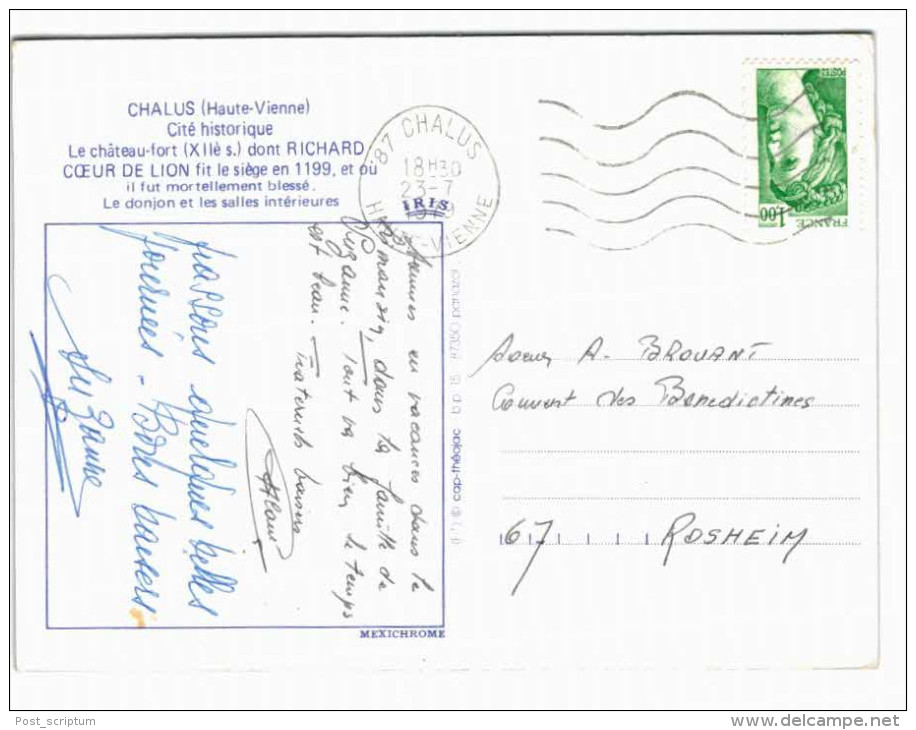 CHALUS (Haute-Vienne)
Cité historique
Le château-fort (XIIè s.) dont RICHARD
CŒUR DE LION fit le siège en 1199, et où
il fut mortellement blessé.
Le donjon et les salles intérieures
IRIS
87 CHALUS
18H30
23-7
19 9
H -VIENNE
1,00
FRANCE
en vacances dans le
dans la famille de
Suzanne. Tout va bien, le temps
est beau.
Fraternels baisers
Alain
passons quelques belles
journées - Bons baisers
Suzanne
© cap-théojac bp 15 87350 panazol
Soeur A. BROUANT
Couvent des Benedictines
67 ROSHEIM
MEXICHROME
Post_scriptum
www.delcampe.net